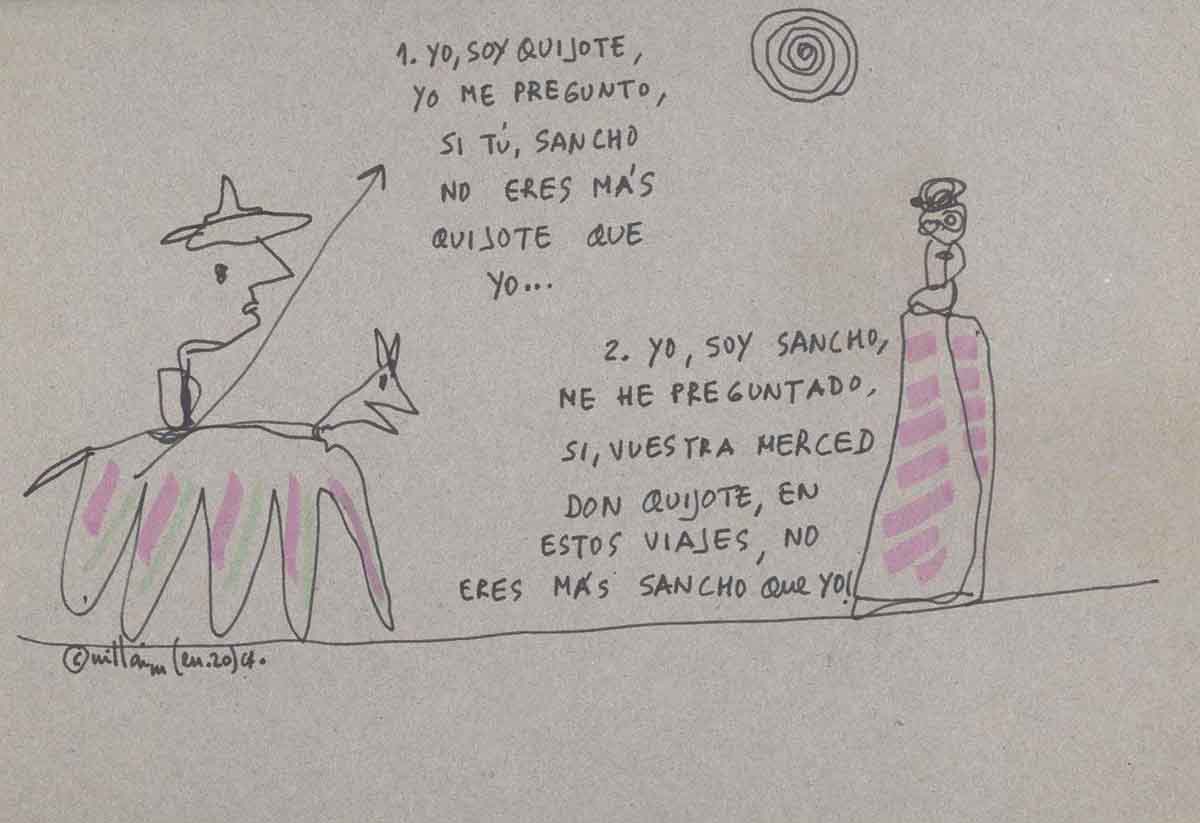 1. YO, SOY QUIJOTE,
YO ME PREGUNTO,
SI TÚ, SANCHO
NO ERES MÁS
QUIJOTE QUE
YO...
2. YO, SOY SANCHO,
ME HE PREGUNTADO,
SI, VUESTRA MERCED
DON QUIJOTE, EN
ESTOS VIAJES, NO
ERES MÁS SANCHO QUE YO!
© (en.20)